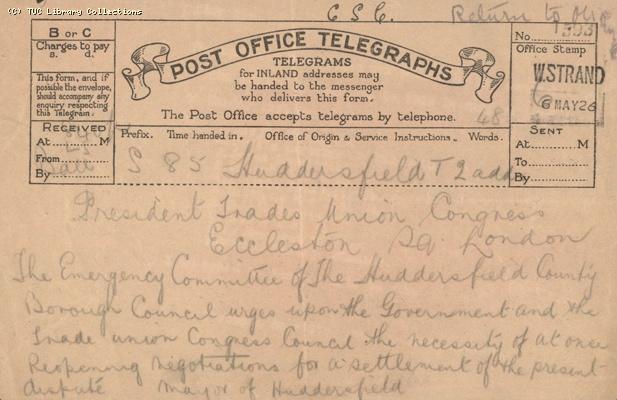 (C) TUC Library Collections
C S C. Return to
B or C
Charges to pay
s. d.
This form, and if
possible the envelope,
should accompany any
enquiry respecting
this Telegram.
RECEIVED
At M
From
By
POST OFFICE TELEGRAPHS
TELEGRAMS
for INLAND addresses may
be handed to the messenger
who delivers this form.
The Post Office accepts telegrams by telephone.
48
Prefix. Time handed in. Office of Origin & Service Instructions. Words.
No.
Office Stamp
W.STRAND
6 MAY 26
SENT
At M
To
By
S 85 Huddersfield T 2 add
President Trades Union Congress
Eccleston Sq London
The Emergency Committee of The Huddersfield County
Borough Council urges upon the Government and the
Trade union Congress Council the necessity of at once
Reopening negotiations for a settlement of the present
dispute Mayor of Huddersfield